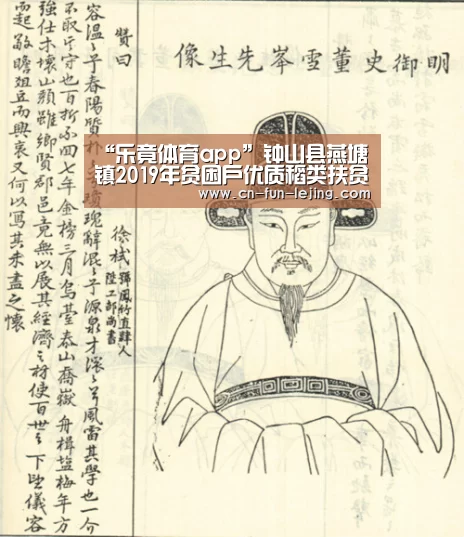 明御史董雪岑先生像
“乐竟体育app”钟山县燕塘
镇2019年贫困户优质稻类扶贫
www.cn-fun-lejing.com
徐栻號鳳竹直隸人
陞工部尚書
贊曰
容溫〻乎春陽質朴〻
瑰辭混〻乎源泉才深〻乎風雷其學也一介
不取其守也百折不回七年金榜三月烏臺泰山喬嶽舟楫鹽梅年方
強仕木壞山頹雖鄉賢郡邑竟無以展其經濟之材使百世之下跂儀容
而起敬瞻爼豆而興哀又何以寫其未盡之懷